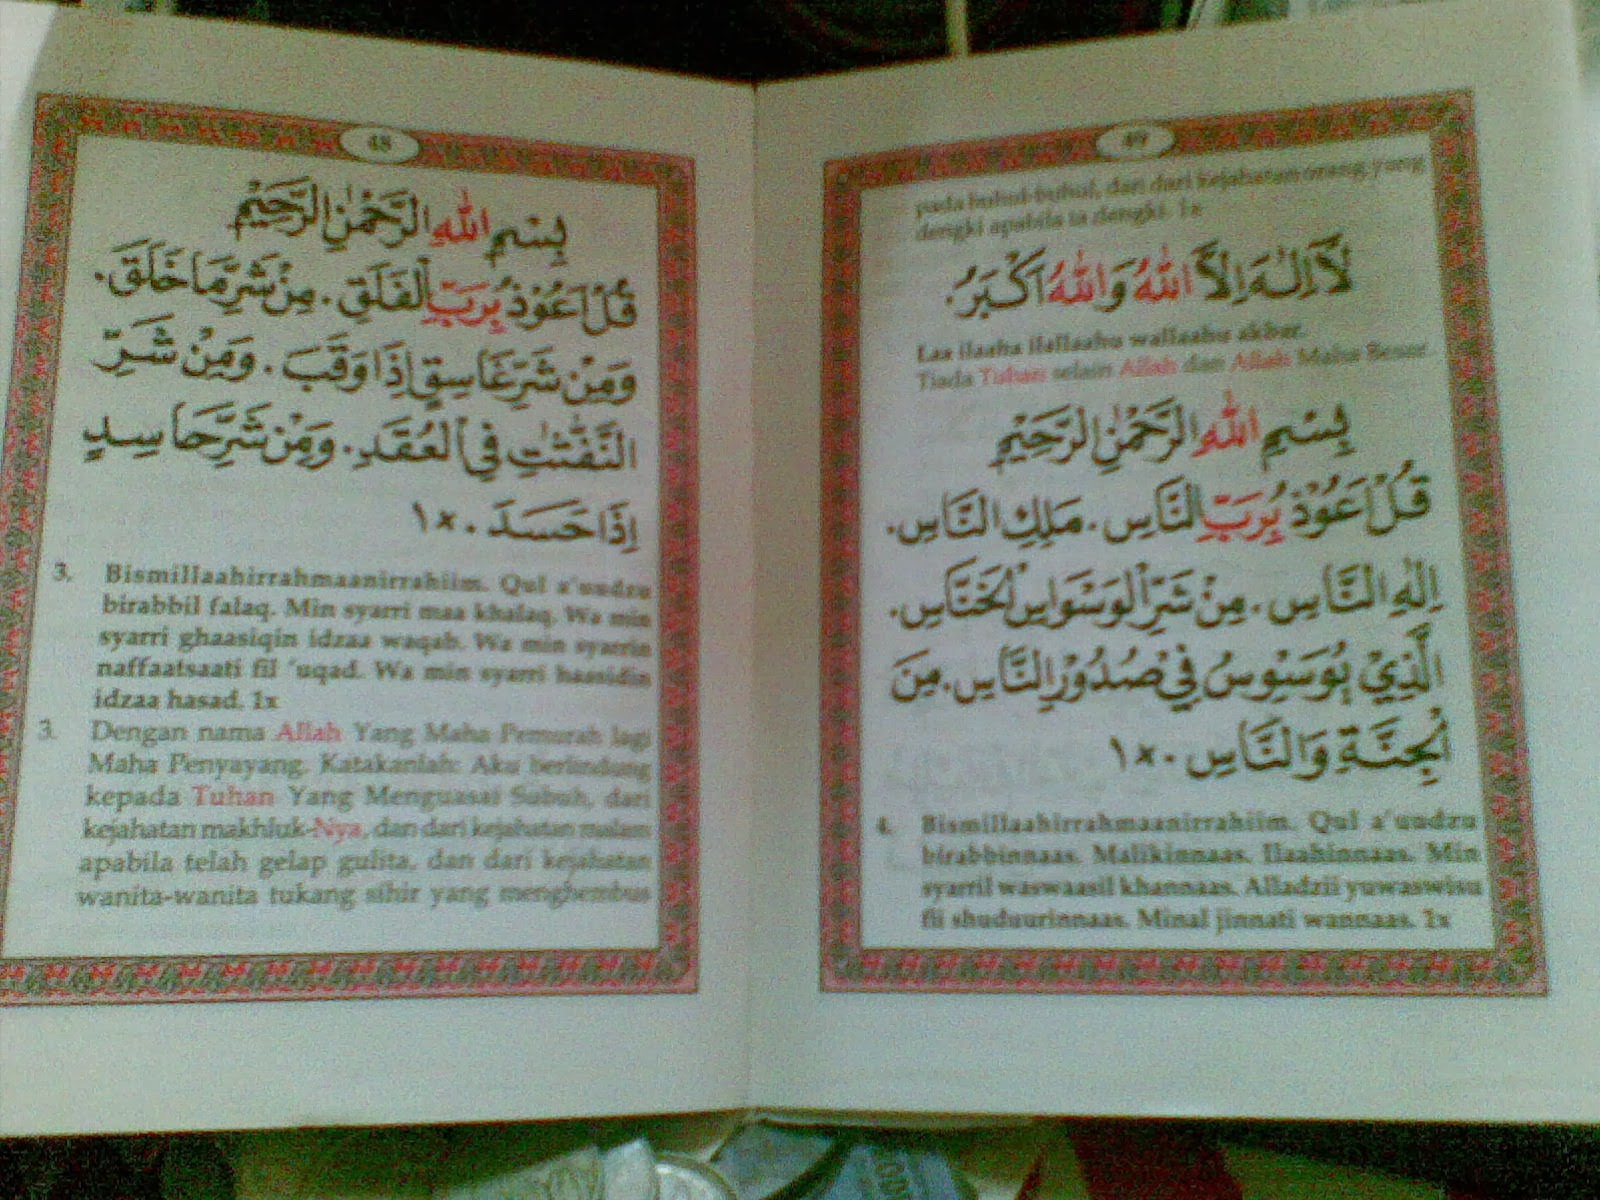 48
بِسْمِ اللّٰهِ الرَّحْمٰنِ الرَّحِيْمِ
قُلْ اَعُوْذُ بِرَبِّ الْفَلَقِ. مِنْ شَرِّ مَا خَلَقَ.
وَمِنْ شَرِّ غَاسِقٍ اِذَا وَقَبَ. وَمِنْ شَرِّ
النَّفّٰثٰتِ فِي الْعُقَدِ. وَمِنْ شَرِّ حَاسِدٍ
اِذَا حَسَدَ. ×١
3. Bismillaahirrahmaanirrahiim. Qul a'uudzu
birabbil falaq. Min syarri maa khalaq. Wa min
syarri ghaasiqin idzaa waqab. Wa min syarrin
naffaatsaati fil 'uqad. Wa min syarri haasidin
idzaa hasad. 1x
3. Dengan nama Allah Yang Maha Pemurah lagi
Maha Penyayang. Katakanlah: Aku berlindung
kepada Tuhan Yang Menguasai Subuh, dari
kejahatan makhluk-Nya, dan dari kejahatan malam
apabila telah gelap gulita, dan dari kejahatan
wanita-wanita tukang sihir yang menghembus
49
pada buhul-buhul, dan dari kejahatan orang yang
dengki apabila ia dengki. 1x
لَآ اِلٰهَ اِلَّا اللّٰهُ وَاللّٰهُ اَكْبَرُ.
Laa ilaaha ilallaahu wallaahu akbar.
Tiada Tuhan selain Allah dan Allah Maha Besar.
بِسْمِ اللّٰهِ الرَّحْمٰنِ الرَّحِيْمِ
قُلْ اَعُوْذُ بِرَبِّ النَّاسِ. مَلِكِ النَّاسِ.
اِلٰهِ النَّاسِ. مِنْ شَرِّ الْوَسْوَاسِ الْخَنَّاسِ.
الَّذِيْ يُوَسْوِسُ فِيْ صُدُوْرِ النَّاسِ. مِنَ
الْجِنَّةِ وَالنَّاسِ. ×١
4. Bismillaahirrahmaanirrahiim. Qul a'uudzu
birabbinnaas. Malikinnaas. Ilaahinnaas. Min
syarril waswaasil khannaas. Alladzii yuwaswisu
fii shuduurinnaas. Minal jinnati wannaas. 1x